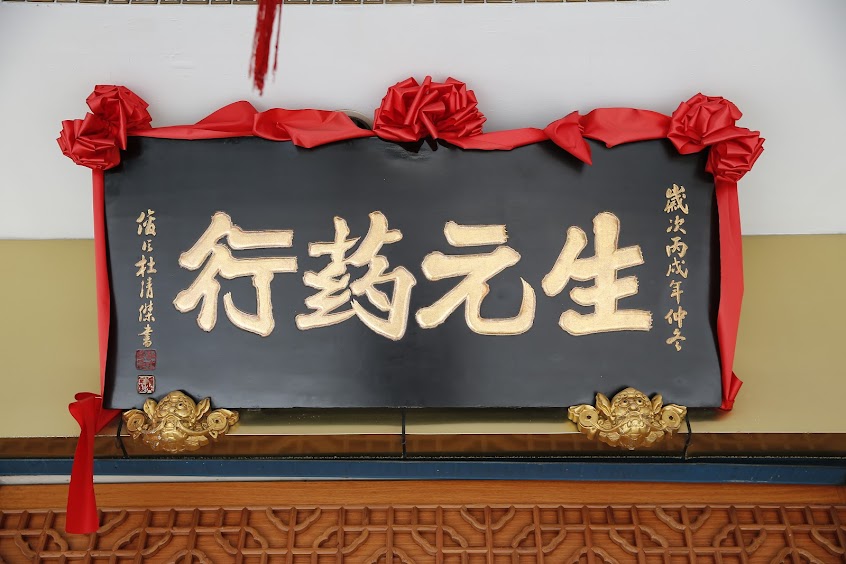 歲次丙戌年仲冬
生元药行
杜清傑書